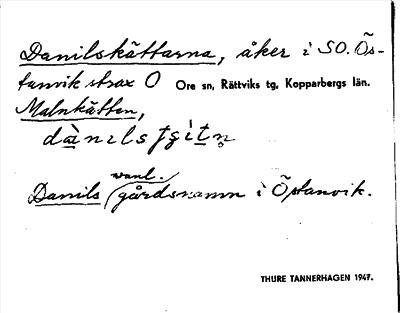 Danilskättarna, åker i SO. Ös-
tanvik strax O Ore sn, Rättviks tg, Kopparbergs län.
Malnkätten,
Danils (vanl. gårdsnamn i Östanvik.
THURE TANNERHAGEN 1947.